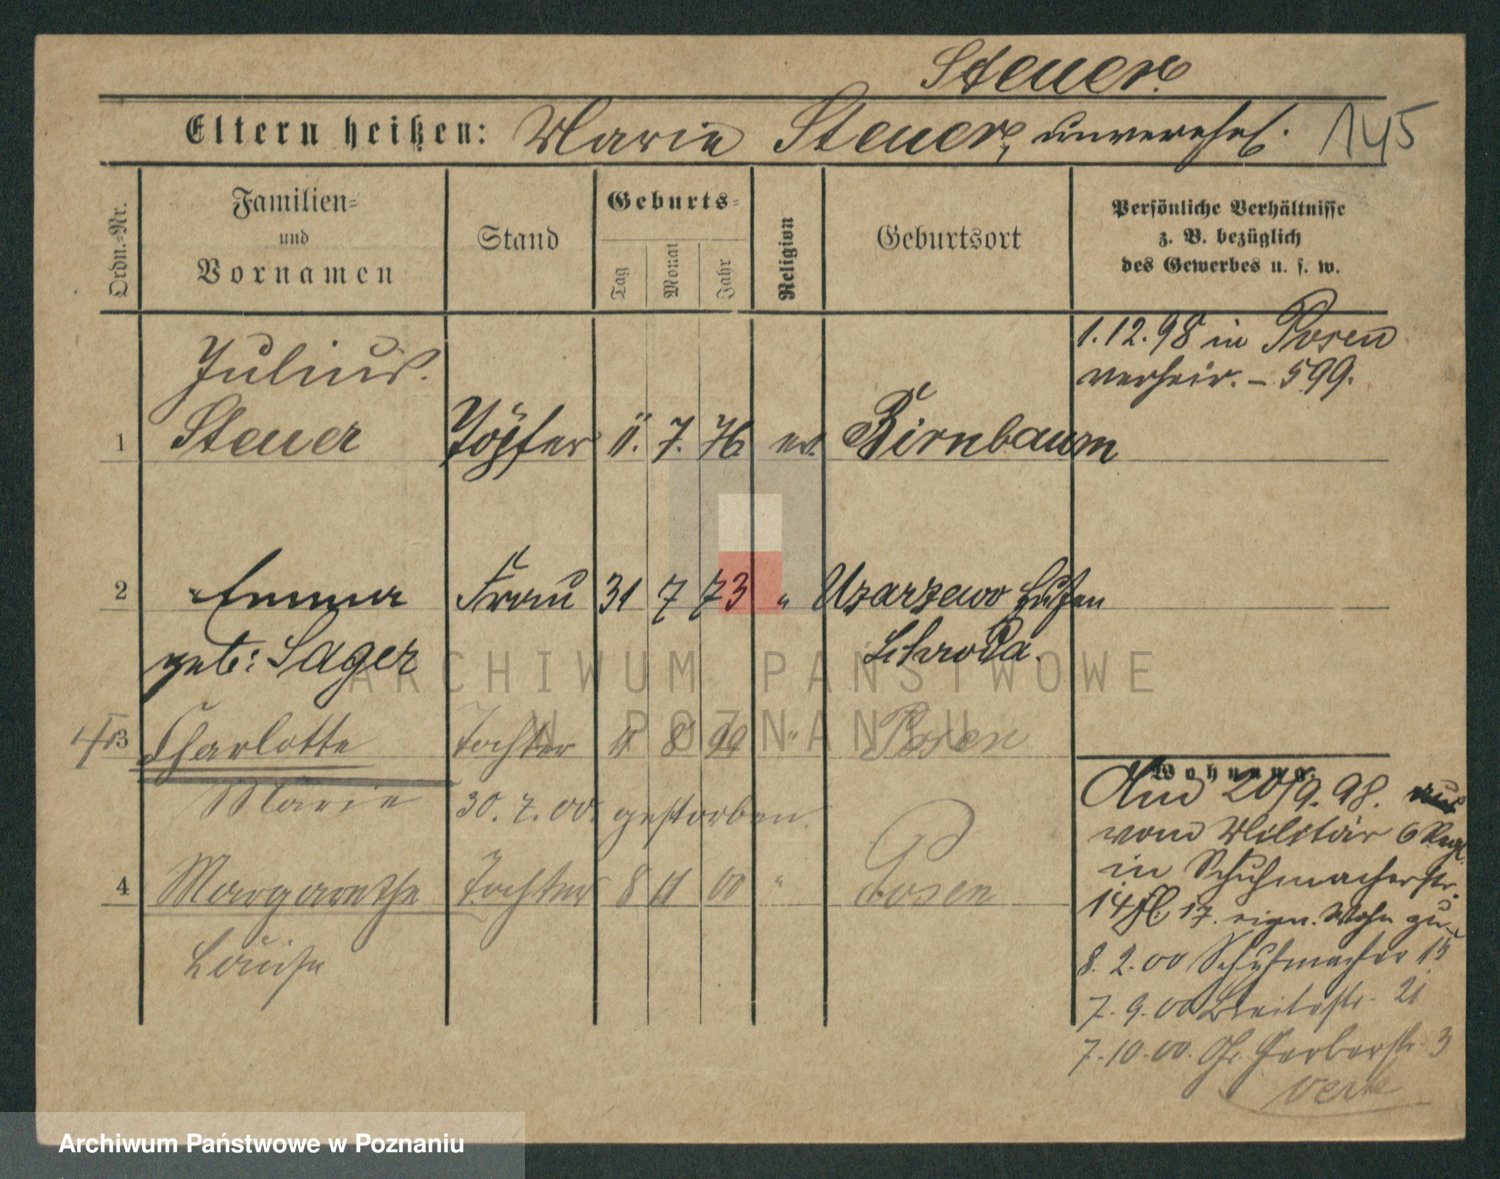 Steuer.
Eltern heißen: Marie Steuer, unverehel. 145
Ordn.-Nr.
Familien-
und
Vornamen
Stand
Geburts-
Tag
Monat
Jahr
Religion
Geburtsort
Persönliche Verhältnisse
z. B. bezüglich
des Gewerbes u. s. w.
1.12.98 in Posen
verheir. – 599.
Julius
1 Steuer Töpfer 11. 7. 76 ev. Birnbaum
2 Emma Frau 31 7 73 " Uzarzewo Hufen
geb: Sager Schroda.
3 Charlotte Tochter 11 8 99 " Posen
Marie 30. 7. 00. gestorben.
4 Margarethe Tochter 8 11 00 " Posen
Louise
Wohnung.
20/9. 98.
vom Militär 6 Regt.
in Schuhmacherstr.
14 17. eign. Wohn
8. 2. 00 Schuhmacher 15
7. 9. 00 Breitestr. 21
7. 10. 00. Gr. Gerberstr. 3
verte
ARCHIWUM PAŃSTWOWE
W POZNANIU
Archiwum Państwowe w Poznaniu